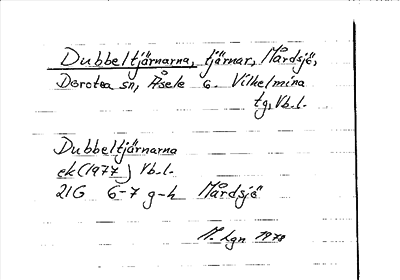 Dubbeltjärnarna, tjärnar, Mårdsjö,
Dorotea sn, Åsele o. Vilhelmina
tg, Vb.l.
Dubbeltjärnarna
ek (1977) Vb.l.
21G 6-7 g-h Mårdsjö
M. Lgn 1978